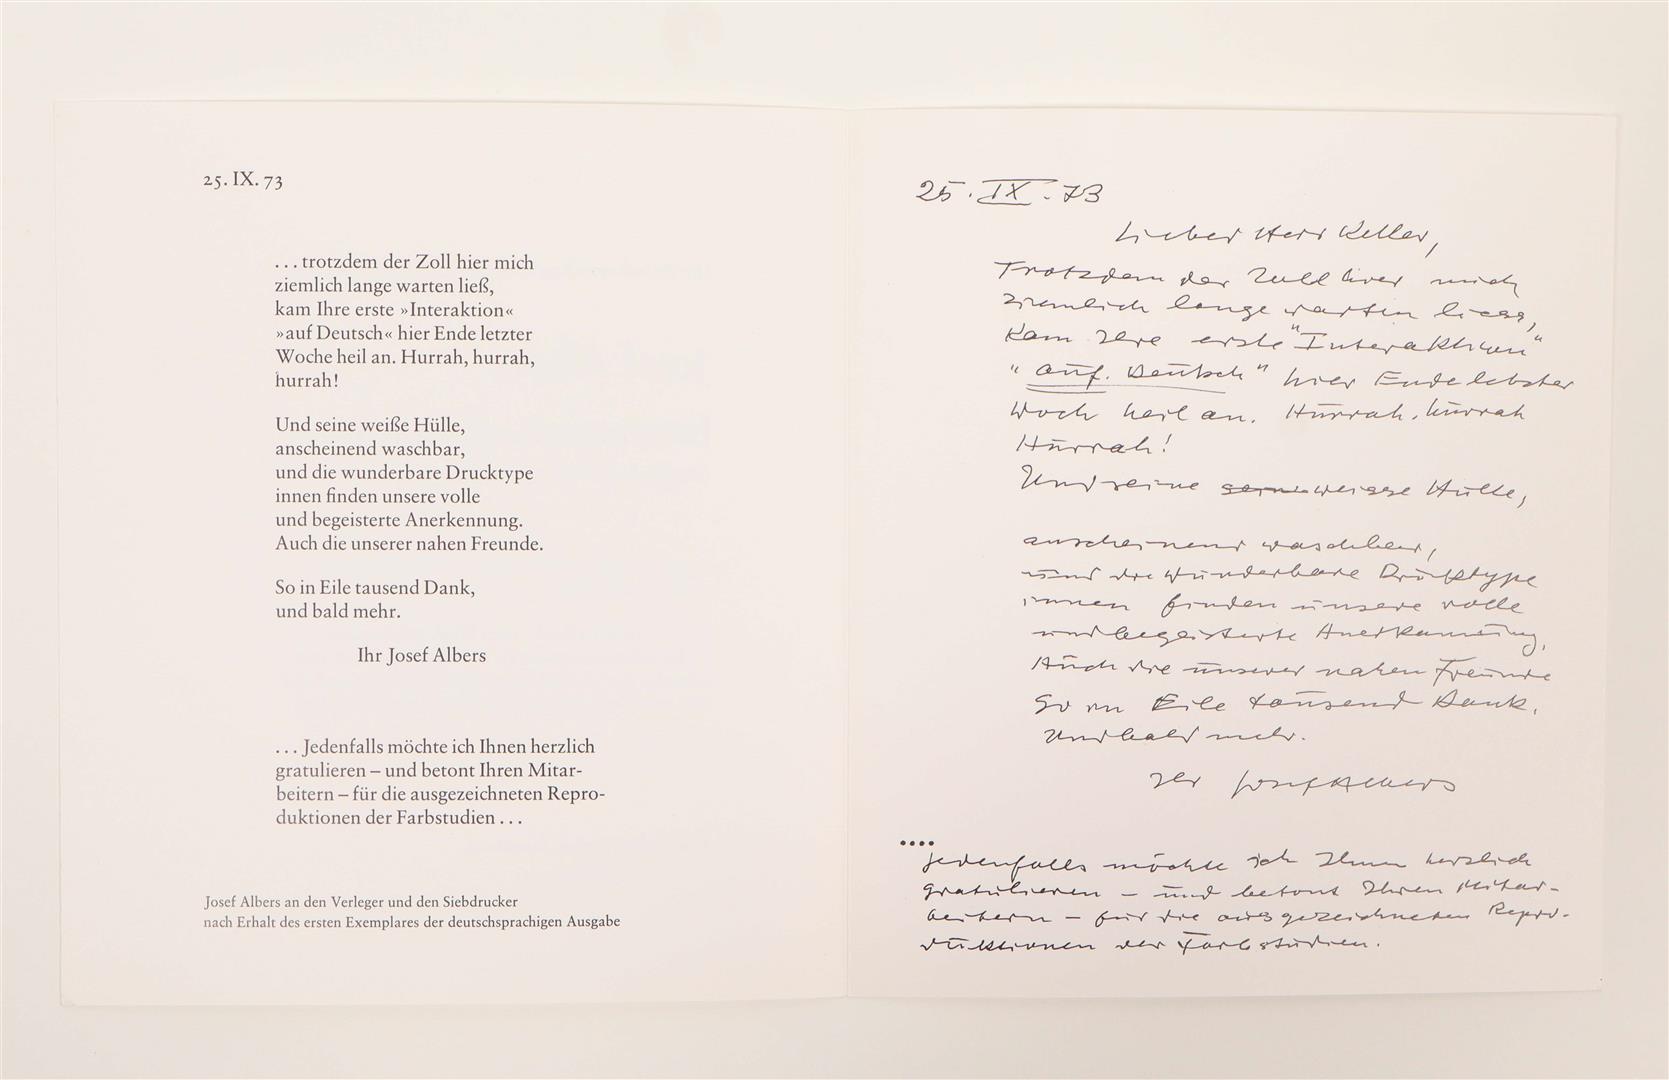 25. IX. 73
. . . trotzdem der Zoll hier mich
ziemlich lange warten ließ,
kam Ihre erste »Interaktion«
»auf Deutsch« hier Ende letzter
Woche heil an. Hurrah, hurrah,
hurrah!
Und seine weiße Hülle,
anscheinend waschbar,
und die wunderbare Drucktype
innen finden unsere volle
und begeisterte Anerkennung.
Auch die unserer nahen Freunde.
So in Eile tausend Dank,
und bald mehr.
Ihr Josef Albers
. . . Jedenfalls möchte ich Ihnen herzlich
gratulieren – und betont Ihren Mitar-
beitern – für die ausgezeichneten Repro-
duktionen der Farbstudien . . .
Josef Albers an den Verleger und den Siebdrucker
nach Erhalt des ersten Exemplares der deutschsprachigen Ausgabe
25. IX. 73
Lieber Herr Keller,
Trotzdem der Zoll hier mich
ziemlich lange warten liess,
kam Ihre erste "Interaktion"
"auf Deutsch" hier Ende letzter
Woch heil an. Hurrah, hurrah
Hurrah!
Und seine weisse Hülle,
anscheinend waschbar,
und die wunderbare Drucktype
innen finden unsere volle
und begeisterte Anerkennung.
Auch die unserer nahen Freunde
So in Eile tausend Dank.
Und bald mehr.
Ihr Josef Albers
....
Jedenfalls möchte ich Ihnen herzlich
gratulieren – und betont Ihren Mitar-
beitern – für die ausgezeichneten Repro-
duktionen der Farbstudien.